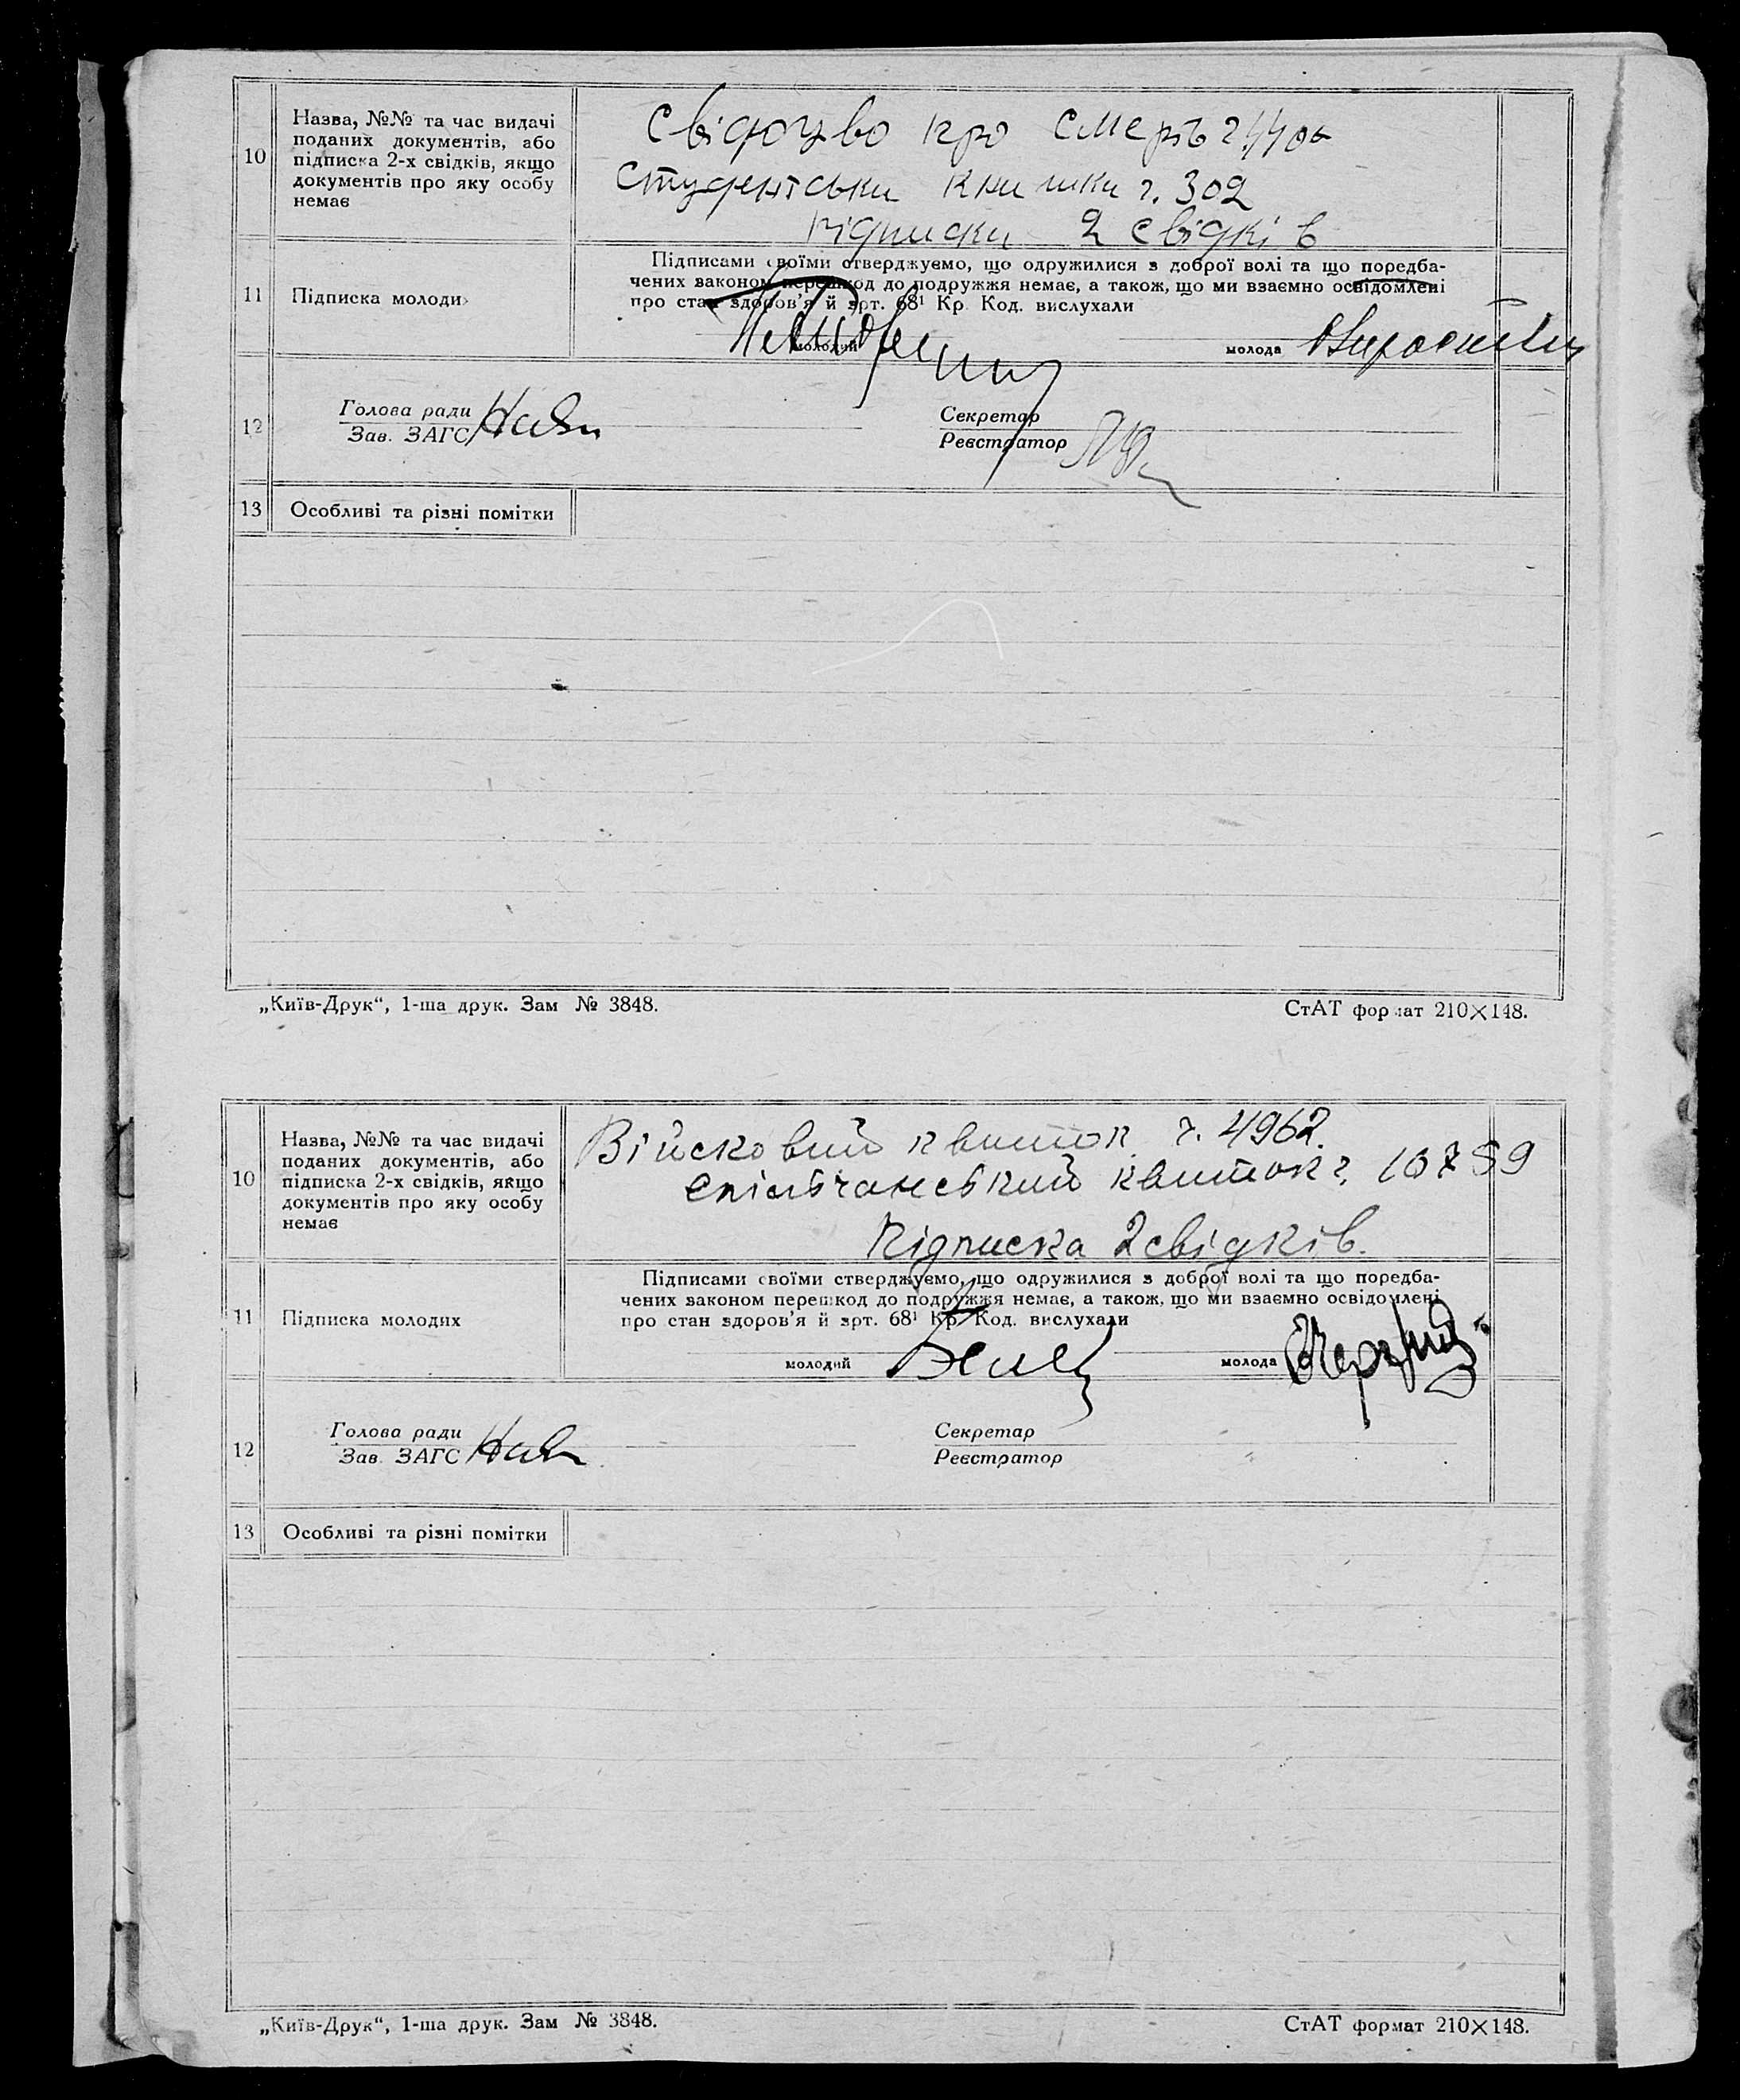 10
Назва, №№ та час видачі
поданих документів, або
підписка 2-х свідків, якщо
документів про яку особу
немає
Свідоцтво про смерть
студентськи книжки г. 302
підписки 2 свідків
11
Підписка молоди
Підписами своїми стверджуємо, що одружилися з доброї волі та що поредба-
чених законом перешкод до подружжя немає, а також, що ми взаємно освідомлені
про стан здоров'я й арт. 68¹ Кр. Код. вислухали
молодий
молода
12
Голова ради
Зав. ЗАГС
Секретар
Реєстратор
13
Особливі та різні помітки
„Київ-Друк“, 1-ша друк. Зам № 3848.
СтАТ формат 210×148.
10
Назва, №№ та час видачі
поданих документів, або
підписка 2-х свідків, якщо
документів про яку особу
немає
Військовий квиток г. 4962.
квиток г.
Підписка 2 свідків.
11
Підписка молодих
Підписами своїми стверджуємо, що одружилися з доброї волі та що поредба-
чених законом перешкод до подружжя немає, а також, що ми взаємно освідомлені
про стан здоров'я й арт. 68¹ Кр. Код. вислухали
молодий
молода
12
Голова ради
Зав. ЗАГС
Секретар
Реєстратор
13
Особливі та різні помітки
„Київ-Друк“, 1-ша друк. Зам № 3848.
СтАТ формат 210×148.